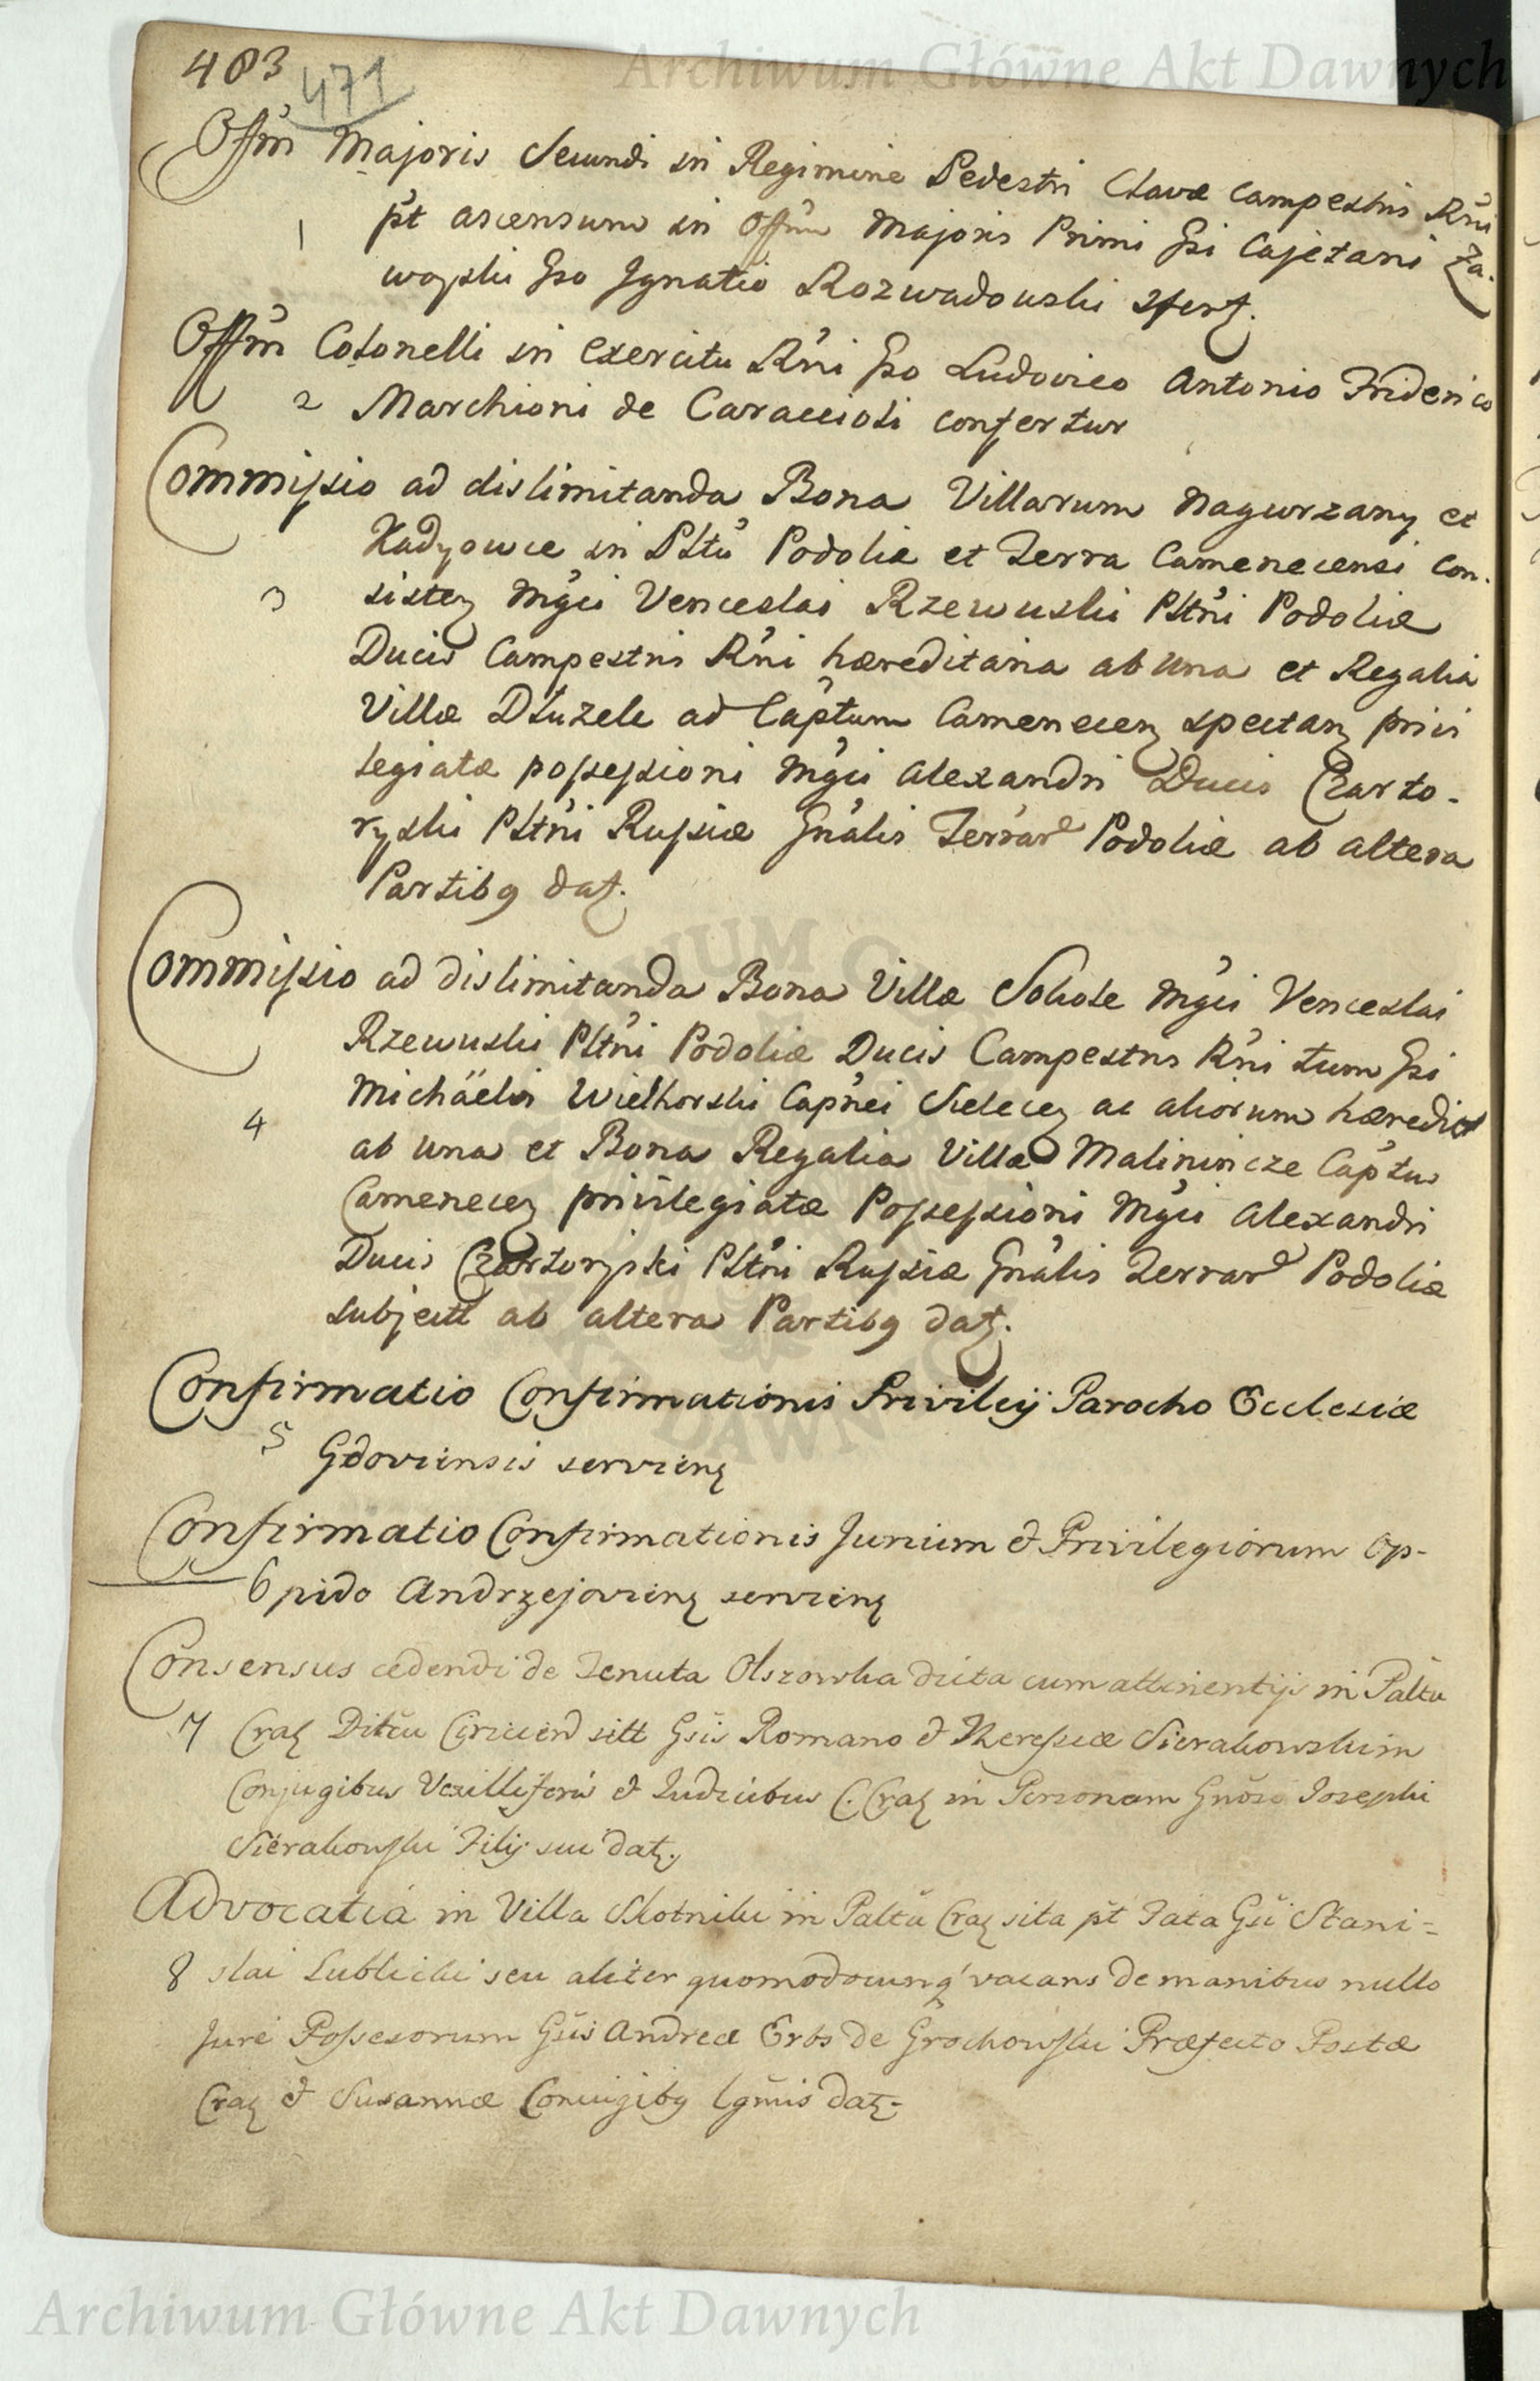 Archiwum Główne Akt Dawnych
483
471
Offm Majoris Secundi in Regimine Pedestri Clavæ Campestris Rńi
1 pt ascensum in Offm Majoris Primi Gsi Cajetani Za-
woyski Gso Ignatio Rozwadowski
Offm Colonelli in Exercitu Rńi Gso Ludovico Antonio Friderico
2 Marchioni de Caraccioli confertur
Commissio ad dislimitanda Bona Villarum Nagurzany et
Kadyowce in Pltu Podoliæ et Terra Camenecensi con-
3 sisten Mgci Venceslai Rzewuski Pltńi Podoliæ
Ducis Campestris Rńi hæreditaria ab una et Regalia
Villæ Dłuzek ad Captum Camenecen spectan privi
legiatæ possessioni Mgci Alexandri Ducis Czarto-
ryski Pltńi Russiæ Gńalis Terrar Podoliæ ab altera
Partibq dat.
Commissio ad dislimitanda Bona Villæ Sokole Mgci Venceslai
Rzewuski Pltńi Podoliæ Ducis Campestris Rńi tum Gsi
Michäelis Wielhorski Capnei Kielecen ac aliorum hæredit
4 ab una et Bona Regalia Villæ Malinincze Captus
Camenecen privilegiatæ Possessioni Mgci Alexandri
Ducis Czartoryski Pltńi Russiæ Gńalis Terrar Podoliæ
subject ab altera Partibq dat.
Confirmatio Confirmationis Privilegij Parocho Ecclesiæ
5 Gdoviensis servien
Confirmatio Confirmationis Jurium & Privilegiorum Op-
6 pido Andrzejovien servien
Consensus cedendi de Tenuta Olszowka dicta cum attinentijs in Paltu
7 Crac Dittu sitt Gsis Romano & Theresiæ Sierakowskim
Conjugibus Vexillifero & Judicibus C. Crac in Personam Gnoso Josephi
Sierakowski Filij sui dat.
Advocatia in Villa Skotniki in Paltu Crac sita pt Fata Gsi Stani=
8 slai Lublicki seu aliter quomodocunq vacans de manibus nullo
Jure Possesorum Gsis Andreæ Erbs de Grochowski Præfecto Postæ
Crac & Susannæ Coniugibq lgmis dat.
Archiwum Główne Akt Dawnych